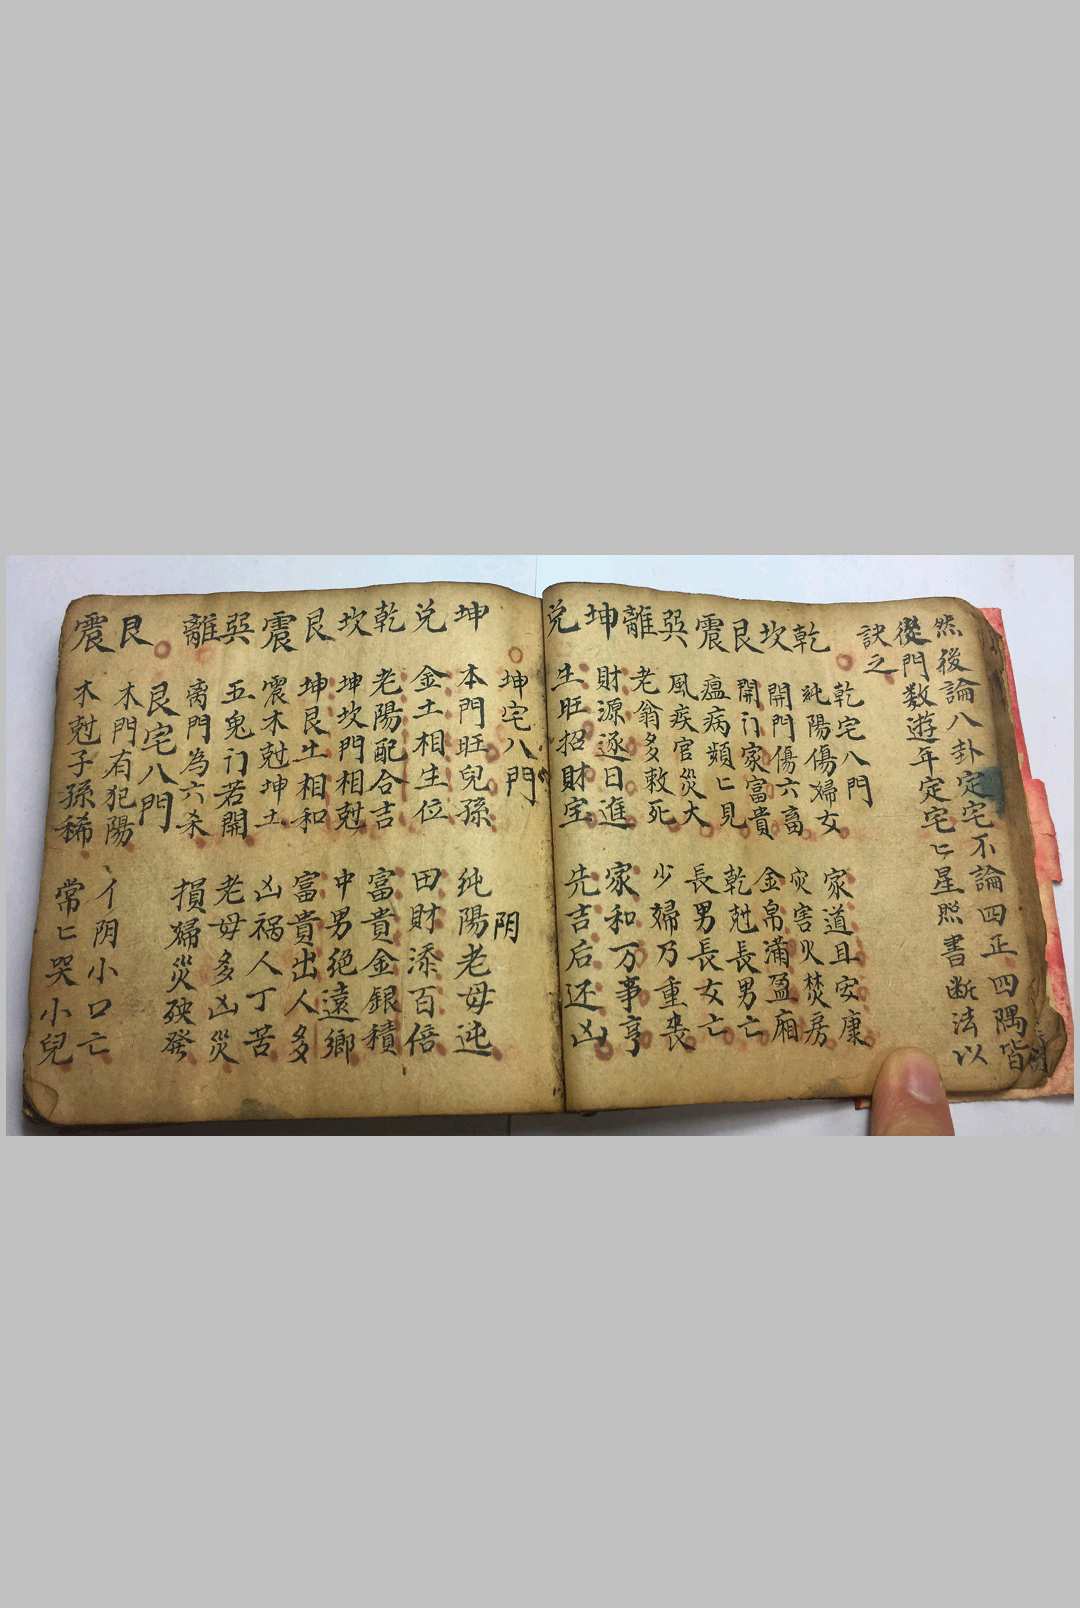 然後論八卦定宅不論四正四隅皆
從門数遊年定宅匕星照書断法以
訣之
乾宅八門
乾 純陽傷婦女 家道且安康
坎 開門傷六畜 灾害火焚房
艮 開门家富貴 金帛滿盈廂
震 瘟病頻匕見 乾尅長男亡
巽 風疾官災大 長男長女亡
離 老翁多敕死 少婦乃重丧
坤 財源逐日進 家和万事亨
兌 生旺招財宝 先吉后还凶
坤宅八門 阴
坤 本門旺兒孫 純陽老母迍
兌 金土相生位 田財添百倍
乾 老陽配合吉 富貴金銀積
坎 坤坎門相尅 中男绝遠鄉
艮 坤艮土相和 富貴出人多
震 震木尅坤土 凶祸人丁苦
巽 五鬼门若開 老母多凶災
離 离門為六杀 損婦災殃發
艮宅八門
艮 木門有犯陽 人阴小口亡
震 木尅子孫稀 常匕哭小兒